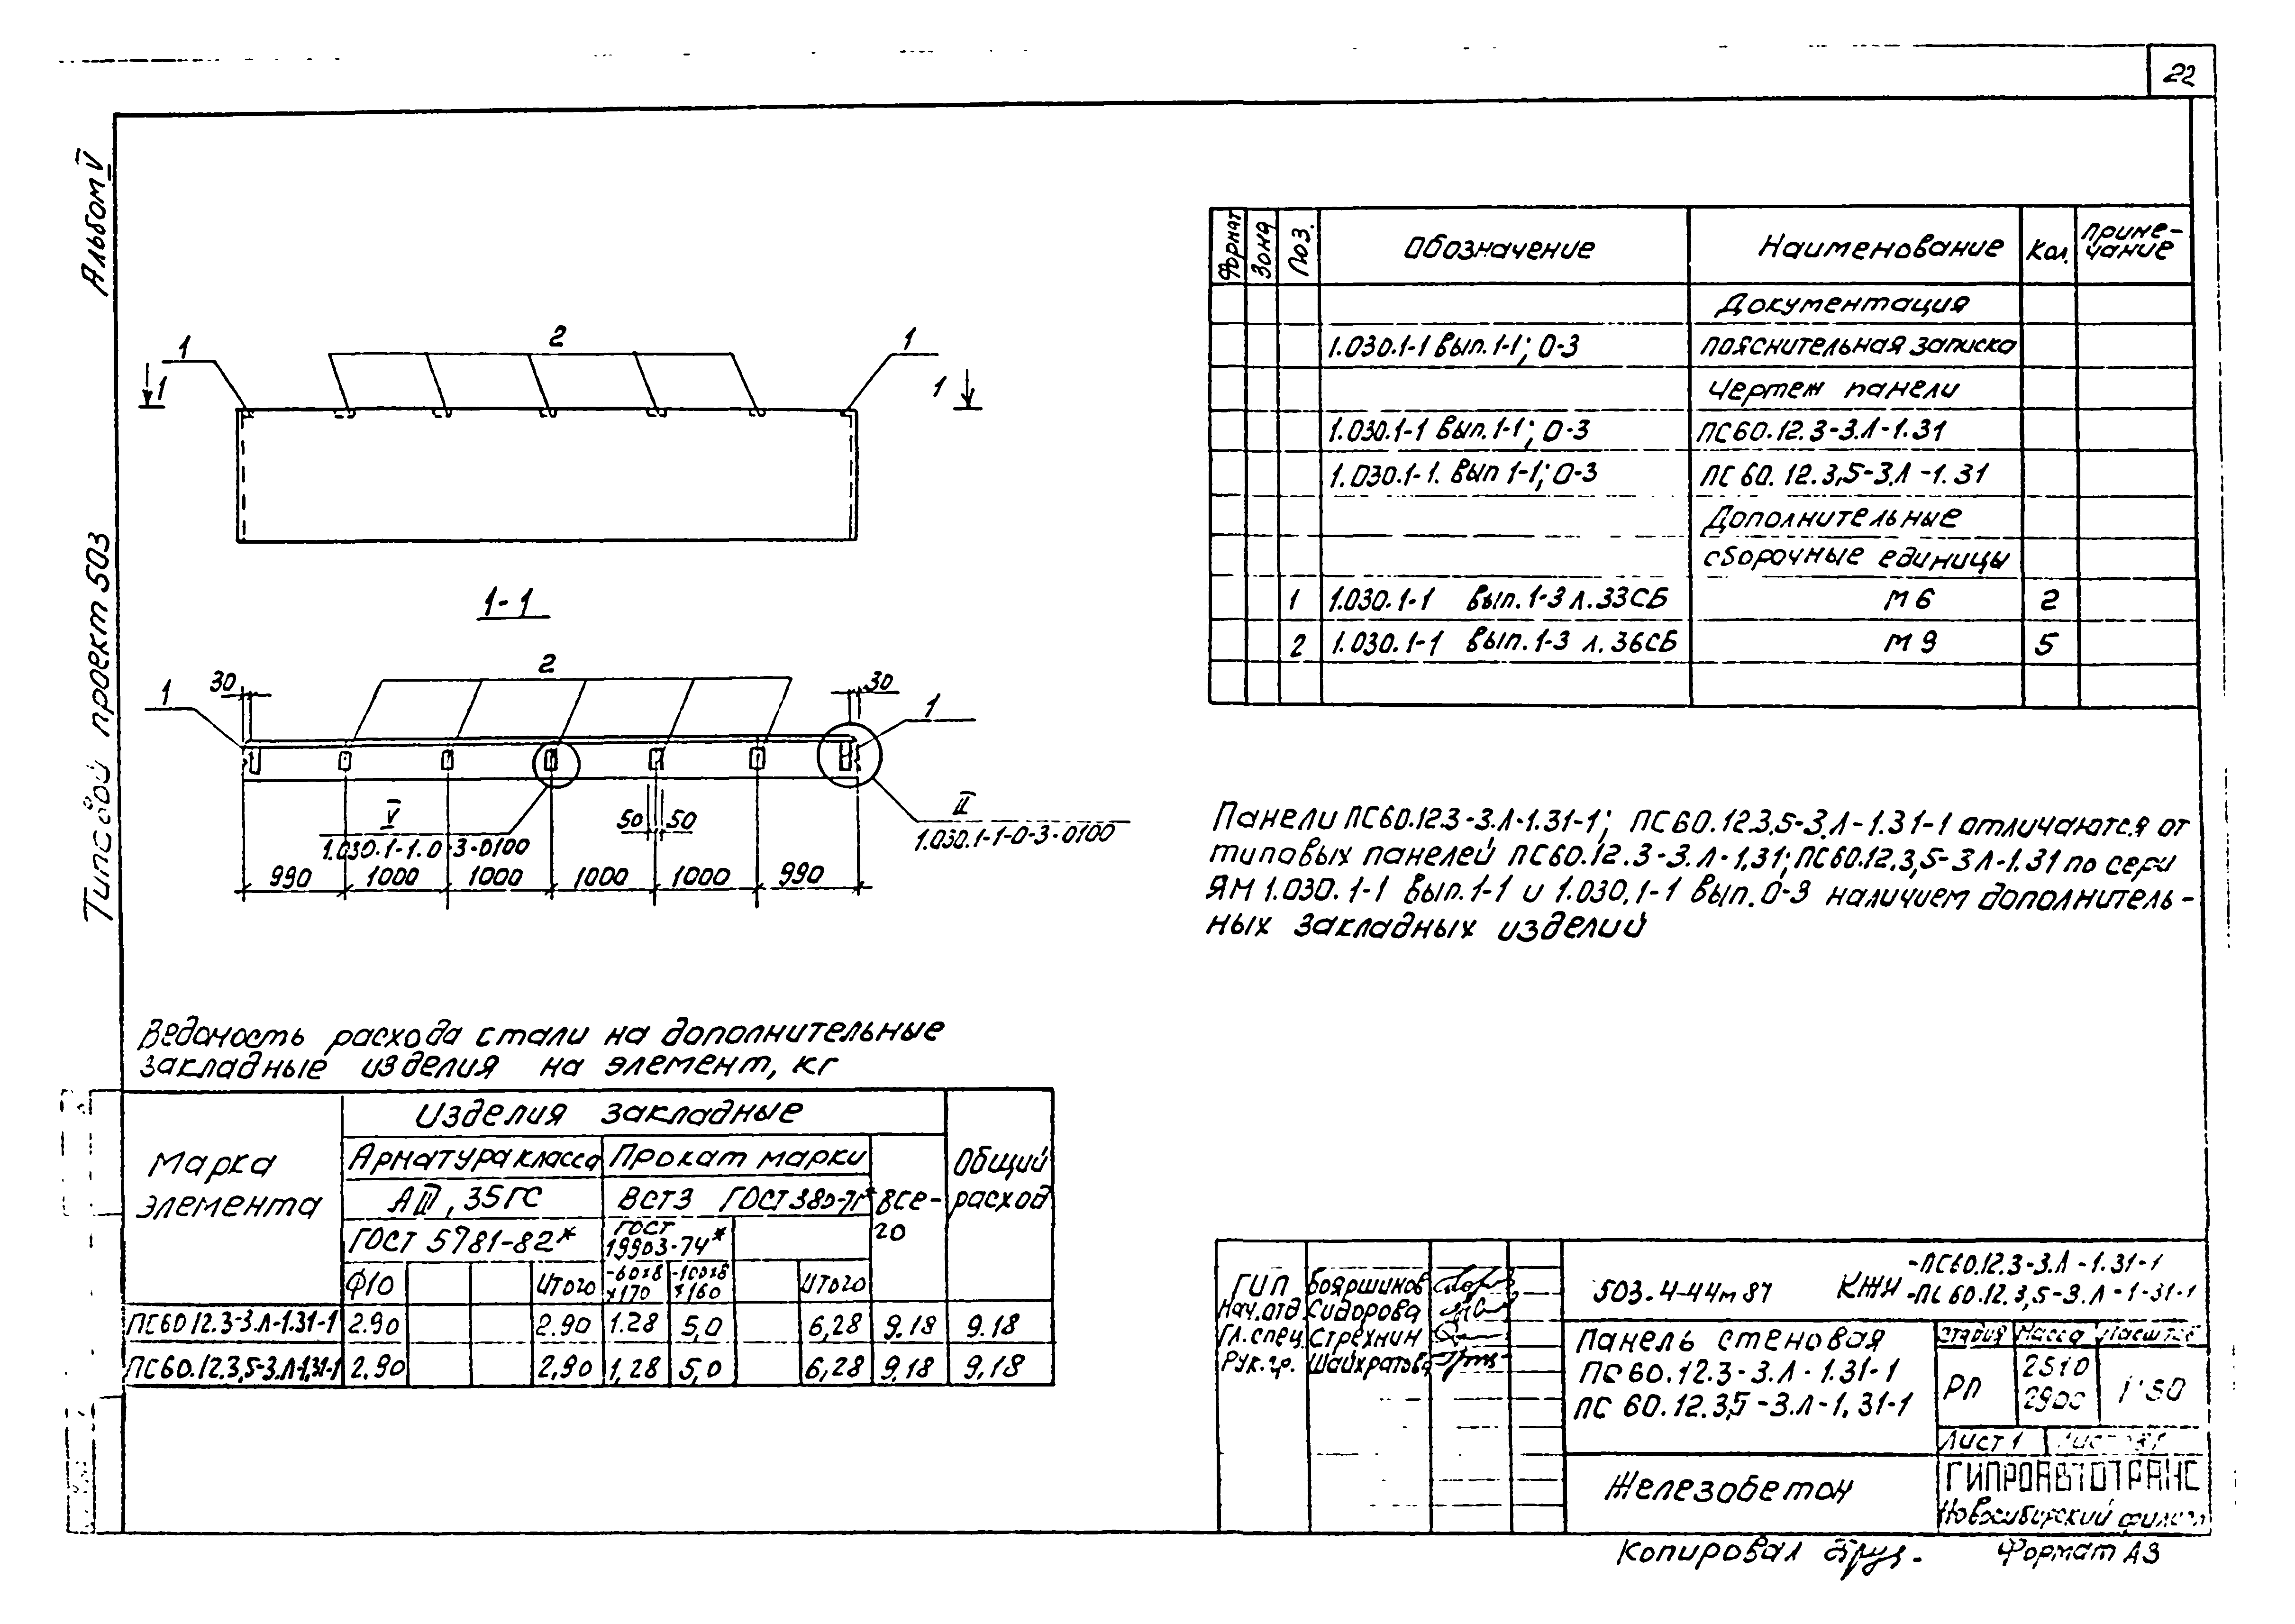 22
Альбом V
Типовой проект 503
1
2
1
1
1
1-1
30
2
30
1
1
V
1.030.1-1.0-3-0100
50 50
II
1.030.1-1-0-3-0100
990 1000 1000 1000 1000 990
Формат Зона Поз. Обозначение Наименование Кол. Приме-
чание
Документация
1.030.1-1 Вып.1-1; 0-3 пояснительная записка
Чертеж панели
1.030.1-1 Вып.1-1; 0-3 ПС60.12.3-3.Л-1.31
1.030.1-1. Вып 1-1; 0-3 ПС 60.12.3,5-3.Л-1.31
Дополнительные
сборочные единицы
1 1.030.1-1 Вып.1-3 л.33СБ М6 2
2 1.030.1-1 Вып.1-3 л.36СБ М9 5
Панели ПС60.12.3-3.Л-1.31-1; ПС60.12.3,5-3.Л-1.31-1 отличаются от
типовых панелей ПС60.12.3-3.Л-1.31; ПС60.12.3,5-3Л-1.31 по сери
ЯМ 1.030.1-1 Вып.1-1 и 1.030.1-1 Вып.0-3 наличием дополнитель-
ных закладных изделий
Ведомость расхода стали на дополнительные
закладные изделия на элемент, кг
Марка
элемента
Изделия закладные
Общий
расход
Арматура класса Прокат марки
АIII, 35ГС ВСт3 ГОСТ 380-71* Все-
го
ГОСТ 5781-82* ГОСТ
19903-74*
Ф10 Итого -60х8
х170 -100х8
х160 Итого
ПС60.12.3-3.Л-1.31-1 2.90 2.90 1.28 5,0 6,28 9.18 9.18
ПС60.12.3,5-3.Л-1.31-1 2.90 2,90 1,28 5,0 6,28 9,18 9,18
ГИП Бояршинов
Нач.отд Сидорова
Гл.спец. Стрехнин
Рук.гр. Шайхратова
503.4-44м 87 КЖИ
-ПС60.12.3-3.Л-1.31-1
-ПС 60.12.3,5-3.Л-1-31-1
Панель стеновая
ПС60.12.3-3.Л-1.31-1
ПС 60.12.3,5-3.Л-1,31-1
Стадия Масса Масштаб
РП 2510
2900 1:50
Лист 1
Железобетон
ГИПРОАВТОТРАНС
Новосибирский филиал
Копировал
Формат А3